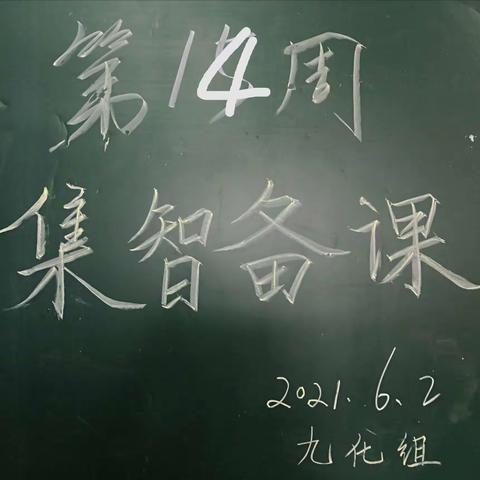 第14周
集智备课
2021.6.2
九化组